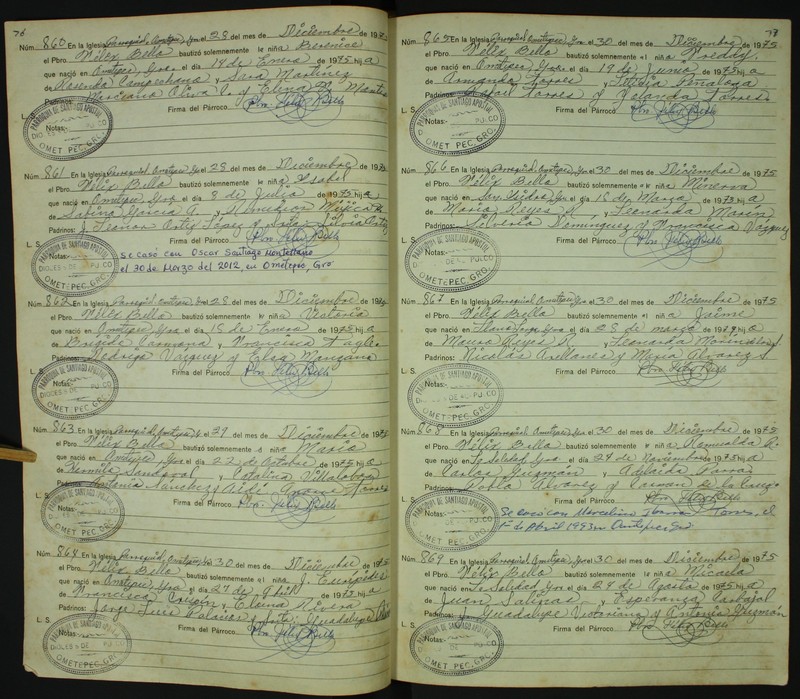 76
Núm. 860 En la Iglesia Parroquial, Ometepec, Gro. el 28 del mes de Diciembre de 1975
el Pbro. Félix Bello bautizó solemnemente a niña Berenice
que nació en Ometepec, Gro. el día 14 de Enero de 1975 hija
de Rosendo Campechano y Sara Martínez
Padrinos: Marciano Oliva L. y Elena
L. S. Firma del Párroco. Pbro. Félix Bello
Notas:
PARROQUIA DE SANTIAGO APOSTOL
OMETEPEC, GRO.
Núm. 861 En la Iglesia Parroquial Ometepec Gro. el 28 del mes de Diciembre de 1975
el Pbro. Félix Bello bautizó solemnemente a niña Isabel
que nació en Ometepec Gro. el día 8 de Julio de 1975 hija
de Sabino García G. y Asunción Mojica
Padrinos: J. Leonor Ortiz López y Srita. Silvia Ortiz
L. S. Firma del Párroco Pbro. Félix Bello
Notas: se caso con Oscar Santiago Montellano
el 30 de Marzo del 2012, en Ometepec, Gro
PARROQUIA DE SANTIAGO APOSTOL
OMETEPEC, GRO.
Núm. 862 En la Iglesia Parroquial Ometepec, Gro. el 28 del mes de Diciembre de
el Pbro. Félix Bello bautizó solemnemente a niña Victoria
que nació en Ometepec Gro. el día 15 de Enero de 1975 hija
de Brigido Carmona y Francisca Tagle
Padrinos: Vázquez y Manzano
L. S. Firma del Párroco Pbro. Félix Bello
Notas:
PARROQUIA DE SANTIAGO APOSTOL
OMETEPEC, GRO.
Núm. 863 En la Iglesia Parroquial, Ometepec, Gro. el 29 del mes de Diciembre de
el Pbro. Félix Bello bautizó solemnemente a niña María
que nació en Ometepec, Gro. el día 22 de Octubre de 1975 hija
de Sandoval y Catalina Villalobos
Padrinos: Antonio Sánchez y
L. S. Firma del Párroco. Pbro. Félix Bello
Notas:
PARROQUIA DE SANTIAGO APOSTOL
OMETEPEC, GRO.
Núm. 864 En la Iglesia Parroquial, Ometepec, Gro. el 30 del mes de Diciembre de 1975
el Pbro. Félix Bello bautizó solemnemente el niño J. Eurípides
que nació en Ometepec, Gro. el día 24 de Abril de 1973
de Francisco y Elaina Rivera
Padrinos: Jorge Luis Palacios y Srita. Guadalupe
L. S. Firma del Párroco. Pbro. Félix Bello
Notas:
PARROQUIA DE SANTIAGO APOSTOL
OMETEPEC, GRO.
77
Núm. 865 En la Iglesia Parroquial, Ometepec, Gro. el 30 del mes de Diciembre de 1975
el Pbro. Félix Bello bautizó solemnemente el niño Freddy.
que nació en Ometepec, Gro. el día 19 de Junio de 1975 hijo
de Armando Torres y Leticia
Padrinos: Rafael Torres y Yolanda Torres
L. S. Firma del Párroco. Pbro. Félix Bello
Notas:
PARROQUIA DE SANTIAGO APOSTOL
OMETEPEC, GRO.
Núm. 866 En la Iglesia Parroquial Ometepec Gro. el 30 del mes de Diciembre de 1975
el Pbro. Félix Bello bautizó solemnemente a niña Minerva
que nació en San Isidro, Gro. el día 18 de Marzo de 1973 hija
de Mario Reyes R. y Leonarda Morín
Padrinos: Silverio Domínguez y Francisca Vázquez
L. S. Firma del Párroco. Pbro. Félix Bello
Notas:
PARROQUIA DE SANTIAGO APOSTOL
OMETEPEC, GRO.
Núm. 867 En la Iglesia Parroquial Ometepec Gro. el 30 del mes de Diciembre de 1975
el Pbro. Félix Bello bautizó solemnemente el niño Jaime
que nació en Gro. el día 28 de marzo de hijo
de Mauro Reyes R. y Leonarda
Padrinos: Nicolás Arellanes y María Alvarez S.
L. S. Firma del Párroco. Pbro. Félix Bello
Notas:
PARROQUIA DE SANTIAGO APOSTOL
OMETEPEC, GRO.
Núm. 868 En la Iglesia Parroquial, Ometepec, Gro. el 30 del mes de Diciembre de 1975
el Pbro. Félix Bello bautizó solemnemente a niña Romualda R.
que nació en La Soledad, Gro. el día 24 de Noviembre de hija
de Carlos Guzmán y Adelaida Parra
Padrinos: Pablo Alvarez y Carmen de la Cruz
L. S. Firma del Párroco. Pbro. Félix Bello
Notas: Se caso con Marcelino Ibarra Torres, el
1º de Abril 1993 en Ometepec, Gro
PARROQUIA DE SANTIAGO APOSTOL
OMETEPEC, GRO.
Núm. 869 En la Iglesia Parroquial, Ometepec, Gro. el 30 del mes de Diciembre de 1975
el Pbro. Félix Bello bautizó solemnemente a niña Micaela
que nació en La Soledad, Gro. el día 24 de Agosto de 1975 hija
de Juan Salinas y Esperanza Carbajal
Padrinos: Guadalupe Victoriano y Antonia Guzmán
L. S. Firma del Párroco. Pbro. Félix Bello
Notas:
PARROQUIA DE SANTIAGO APOSTOL
OMETEPEC, GRO.